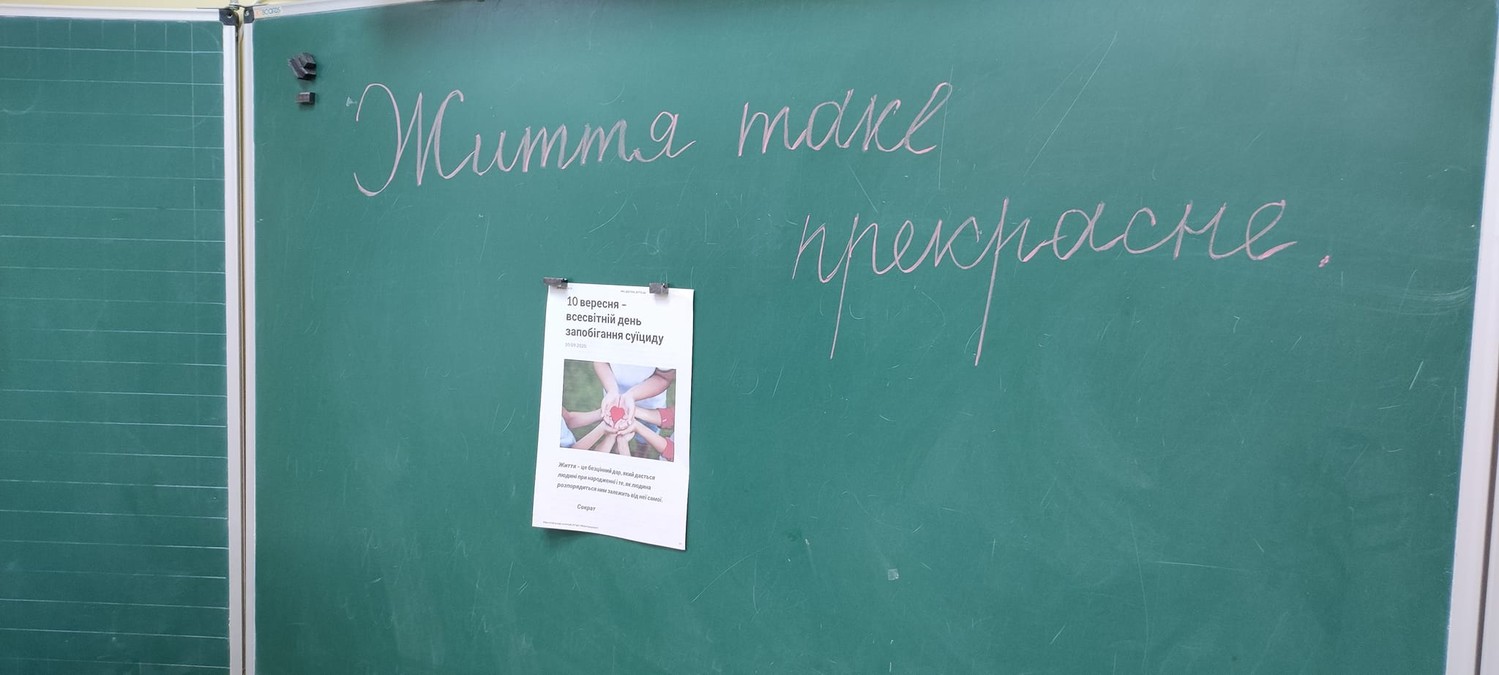 Життя таке
прекрасне.
10 вересня –
всесвітній день
запобігання суїциду
Життя – це безцінний дар, який дається
людині при народженні і те, як людина
розпорядиться ним залежить від неї самої.
Сократ